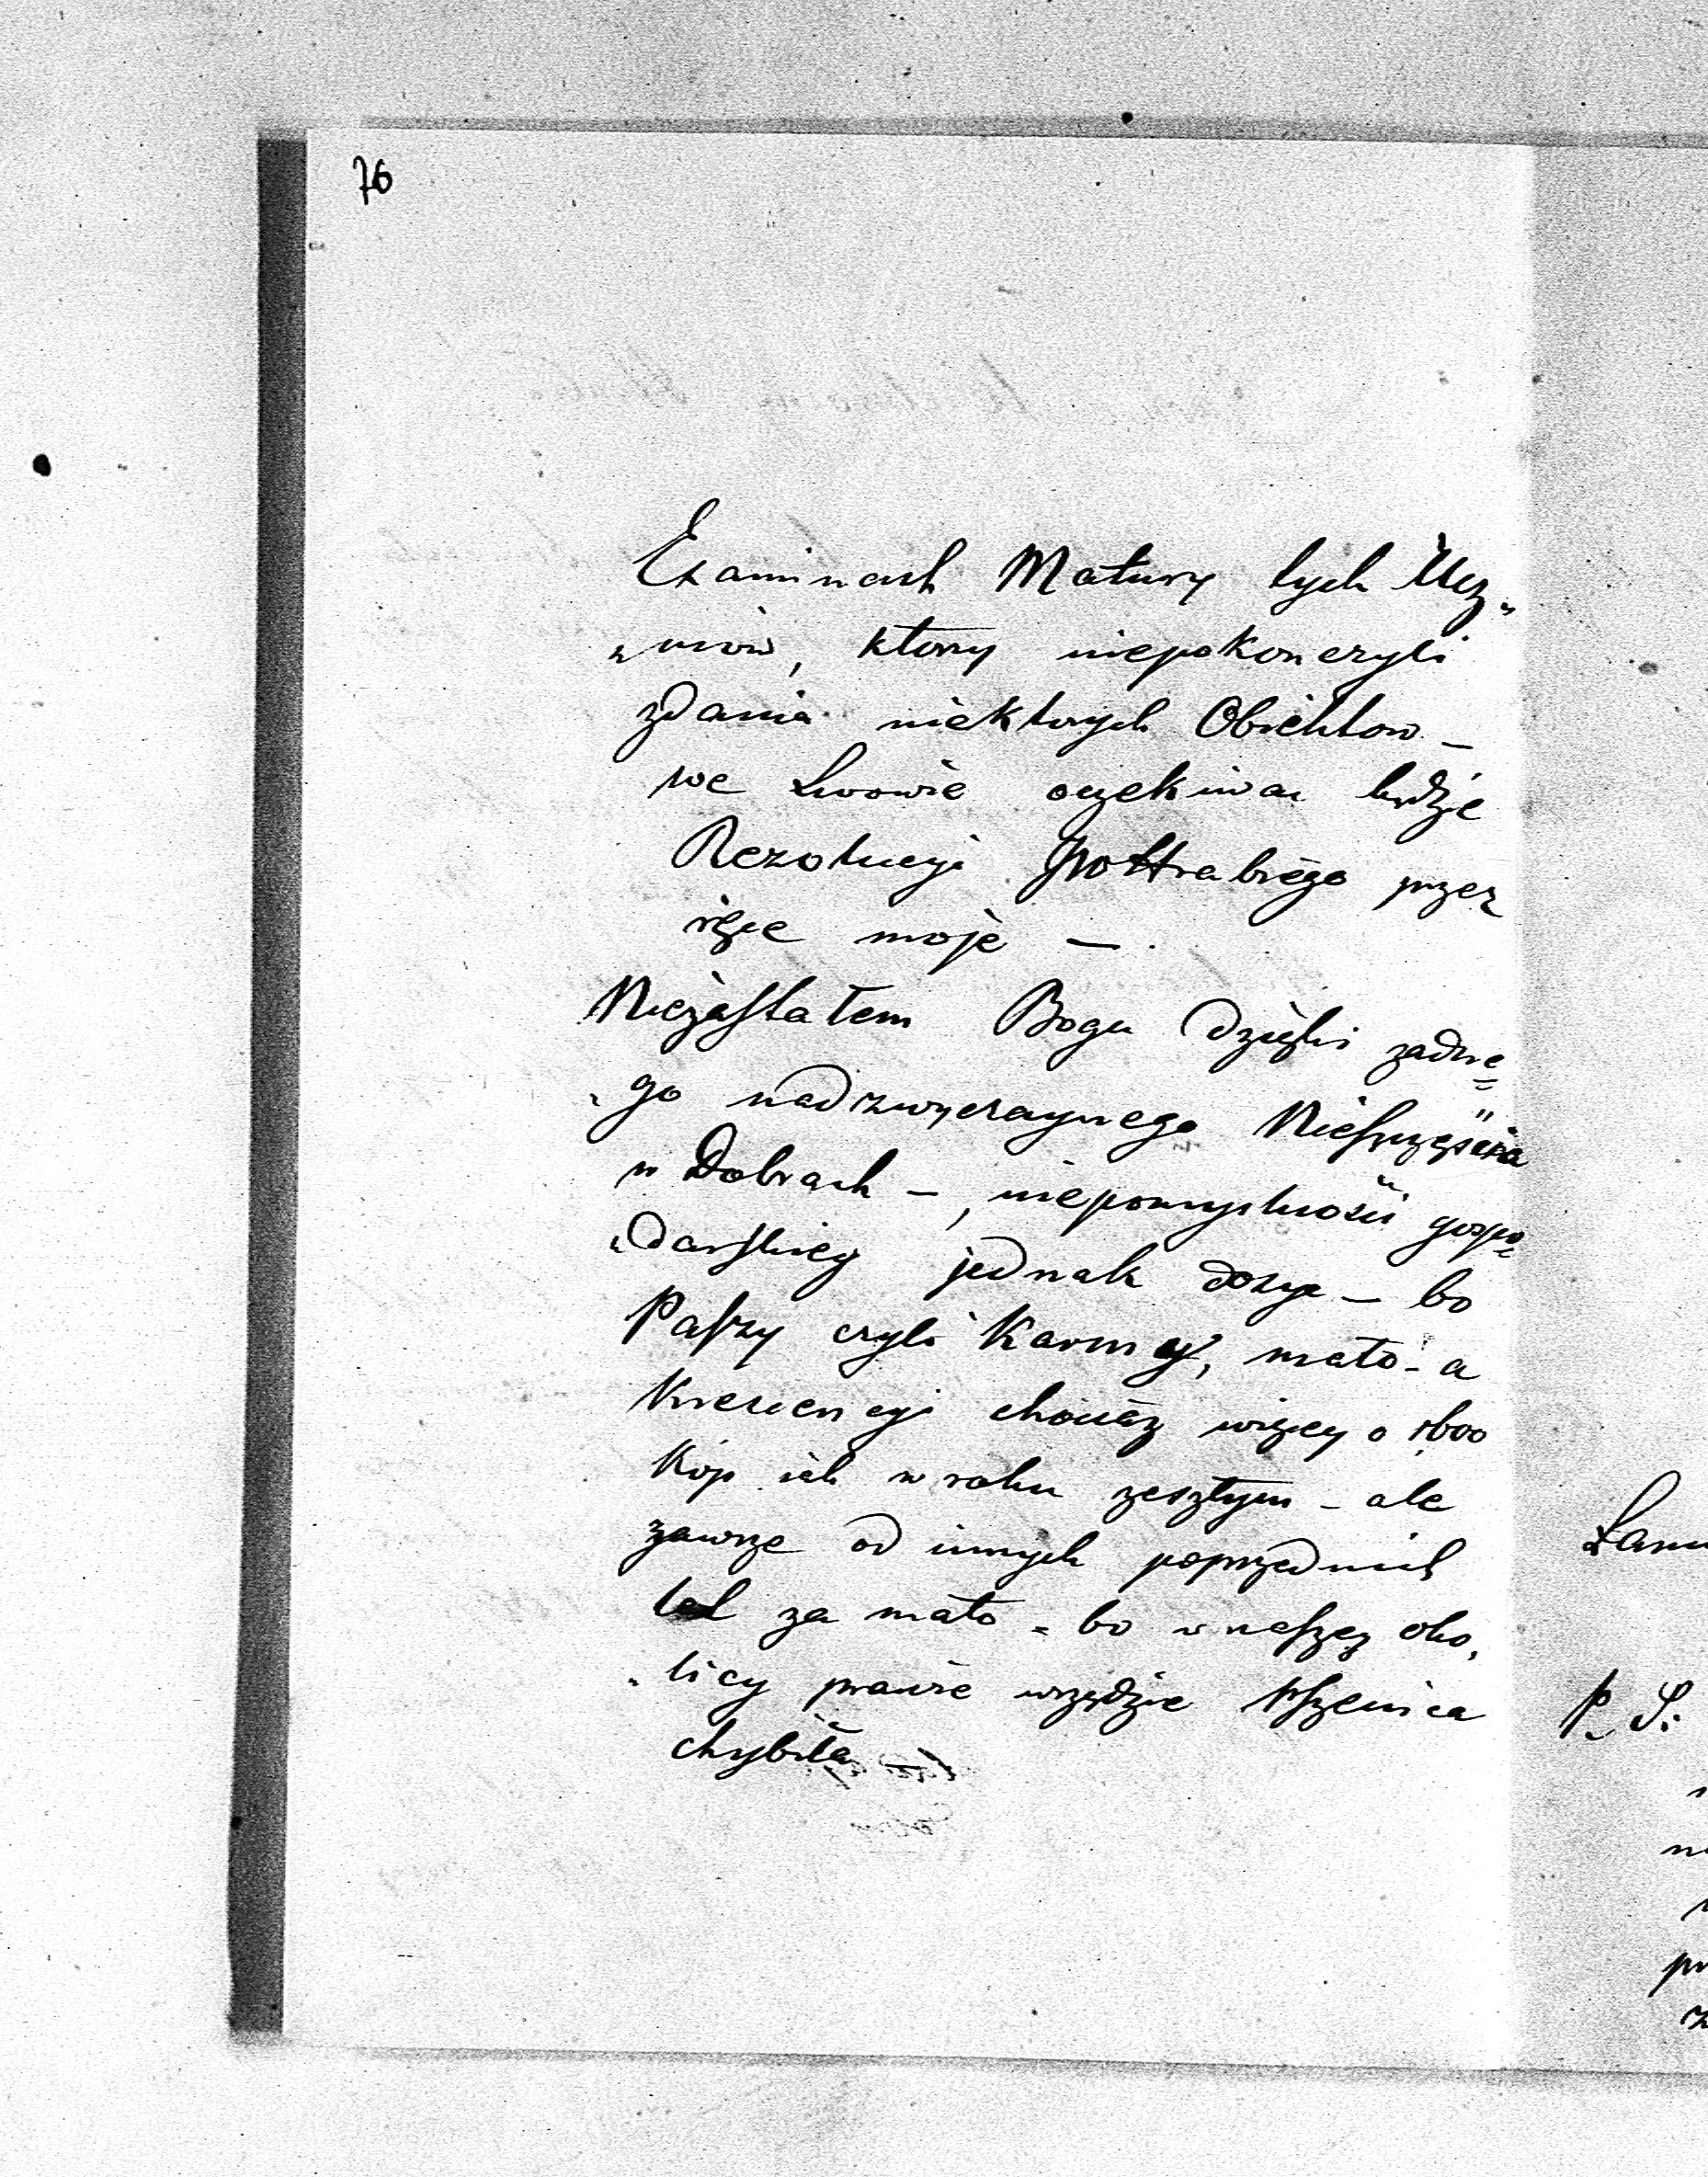 76
Examinach Matury tych Ucz„
„niów, ktorzy niepokonczyli
zdania niektorych Obiektow –
we Lwowie oczekiwac będzie
Rezolucyi JWoHrabiego przez
ręce moje –
Niezastałem Boga dzięki żadne=
„go nadzwyczaynego Nieszczęścia
w Dobrach –, niepomyslności gospo=
„darskiey jednak dosyc – bo
Paszy czyli Karmy, mało – a
Krescencyi chociaz więcey o 1600
Kop jak w roku zeszłym – ale
zawsze od innych poprzednich
lat za mało – bo w naszey oko„
„licy prawie wszędzie Pszenica
chybiła –
P. S.